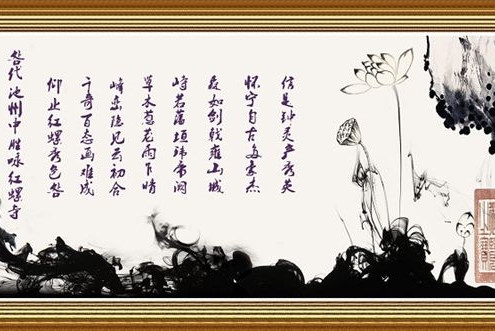 代池州中胜咏红螺寺
仰止红螺秀色
千奇百态画难成
峰峦隐见云初合
草木葱茏雨乍晴
峙若藩垣帝阙
如剑戟雍山城
怀宁自古多豪杰
信是钟灵产秀英